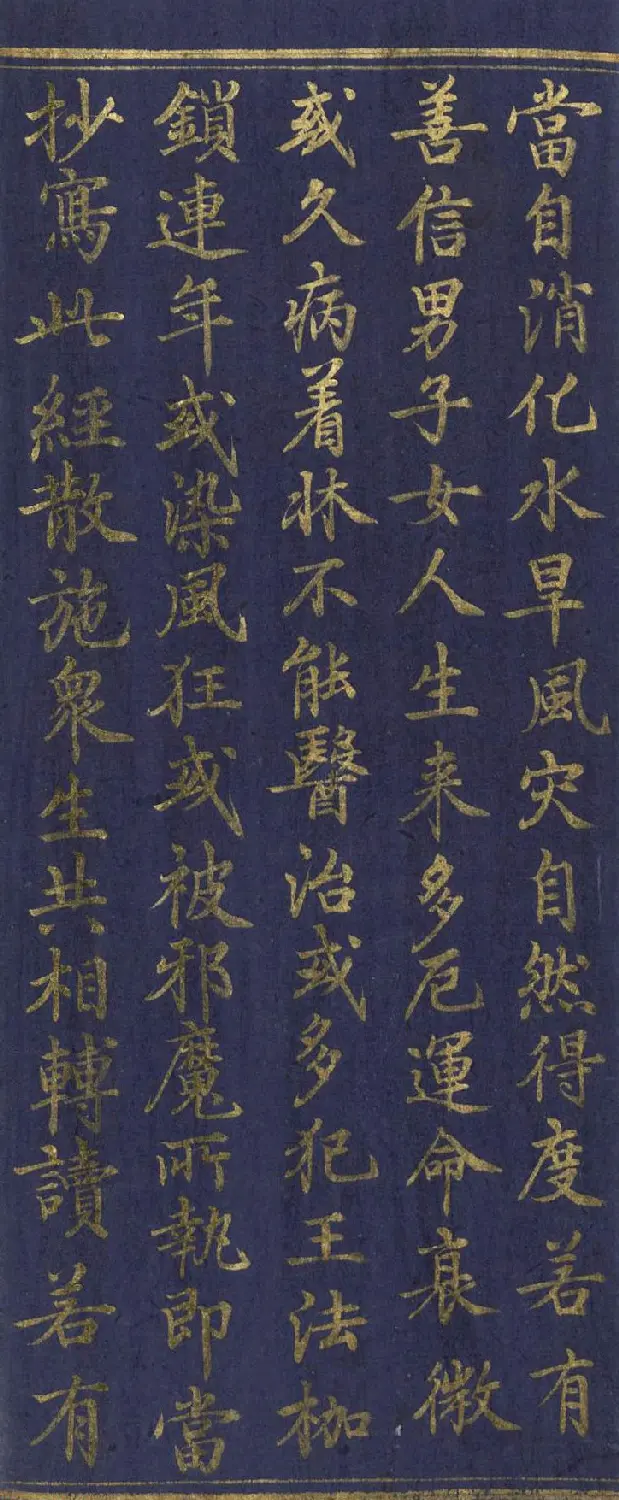 當自消化水旱風灾自然得度若有
善信男子女人生来多厄運命衰微
或久病着牀不能醫治或多犯王法枷
鎖連年或染風狂或被邪魔所執即當
抄寫此經散施衆生共相轉讀若有